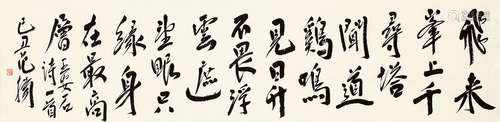 飛來
峯上千
尋塔
聞道
鷄鳴
見日升
不畏浮
雲遮
望眼只
緣身
在最高
層
王安石
詩一首
己丑